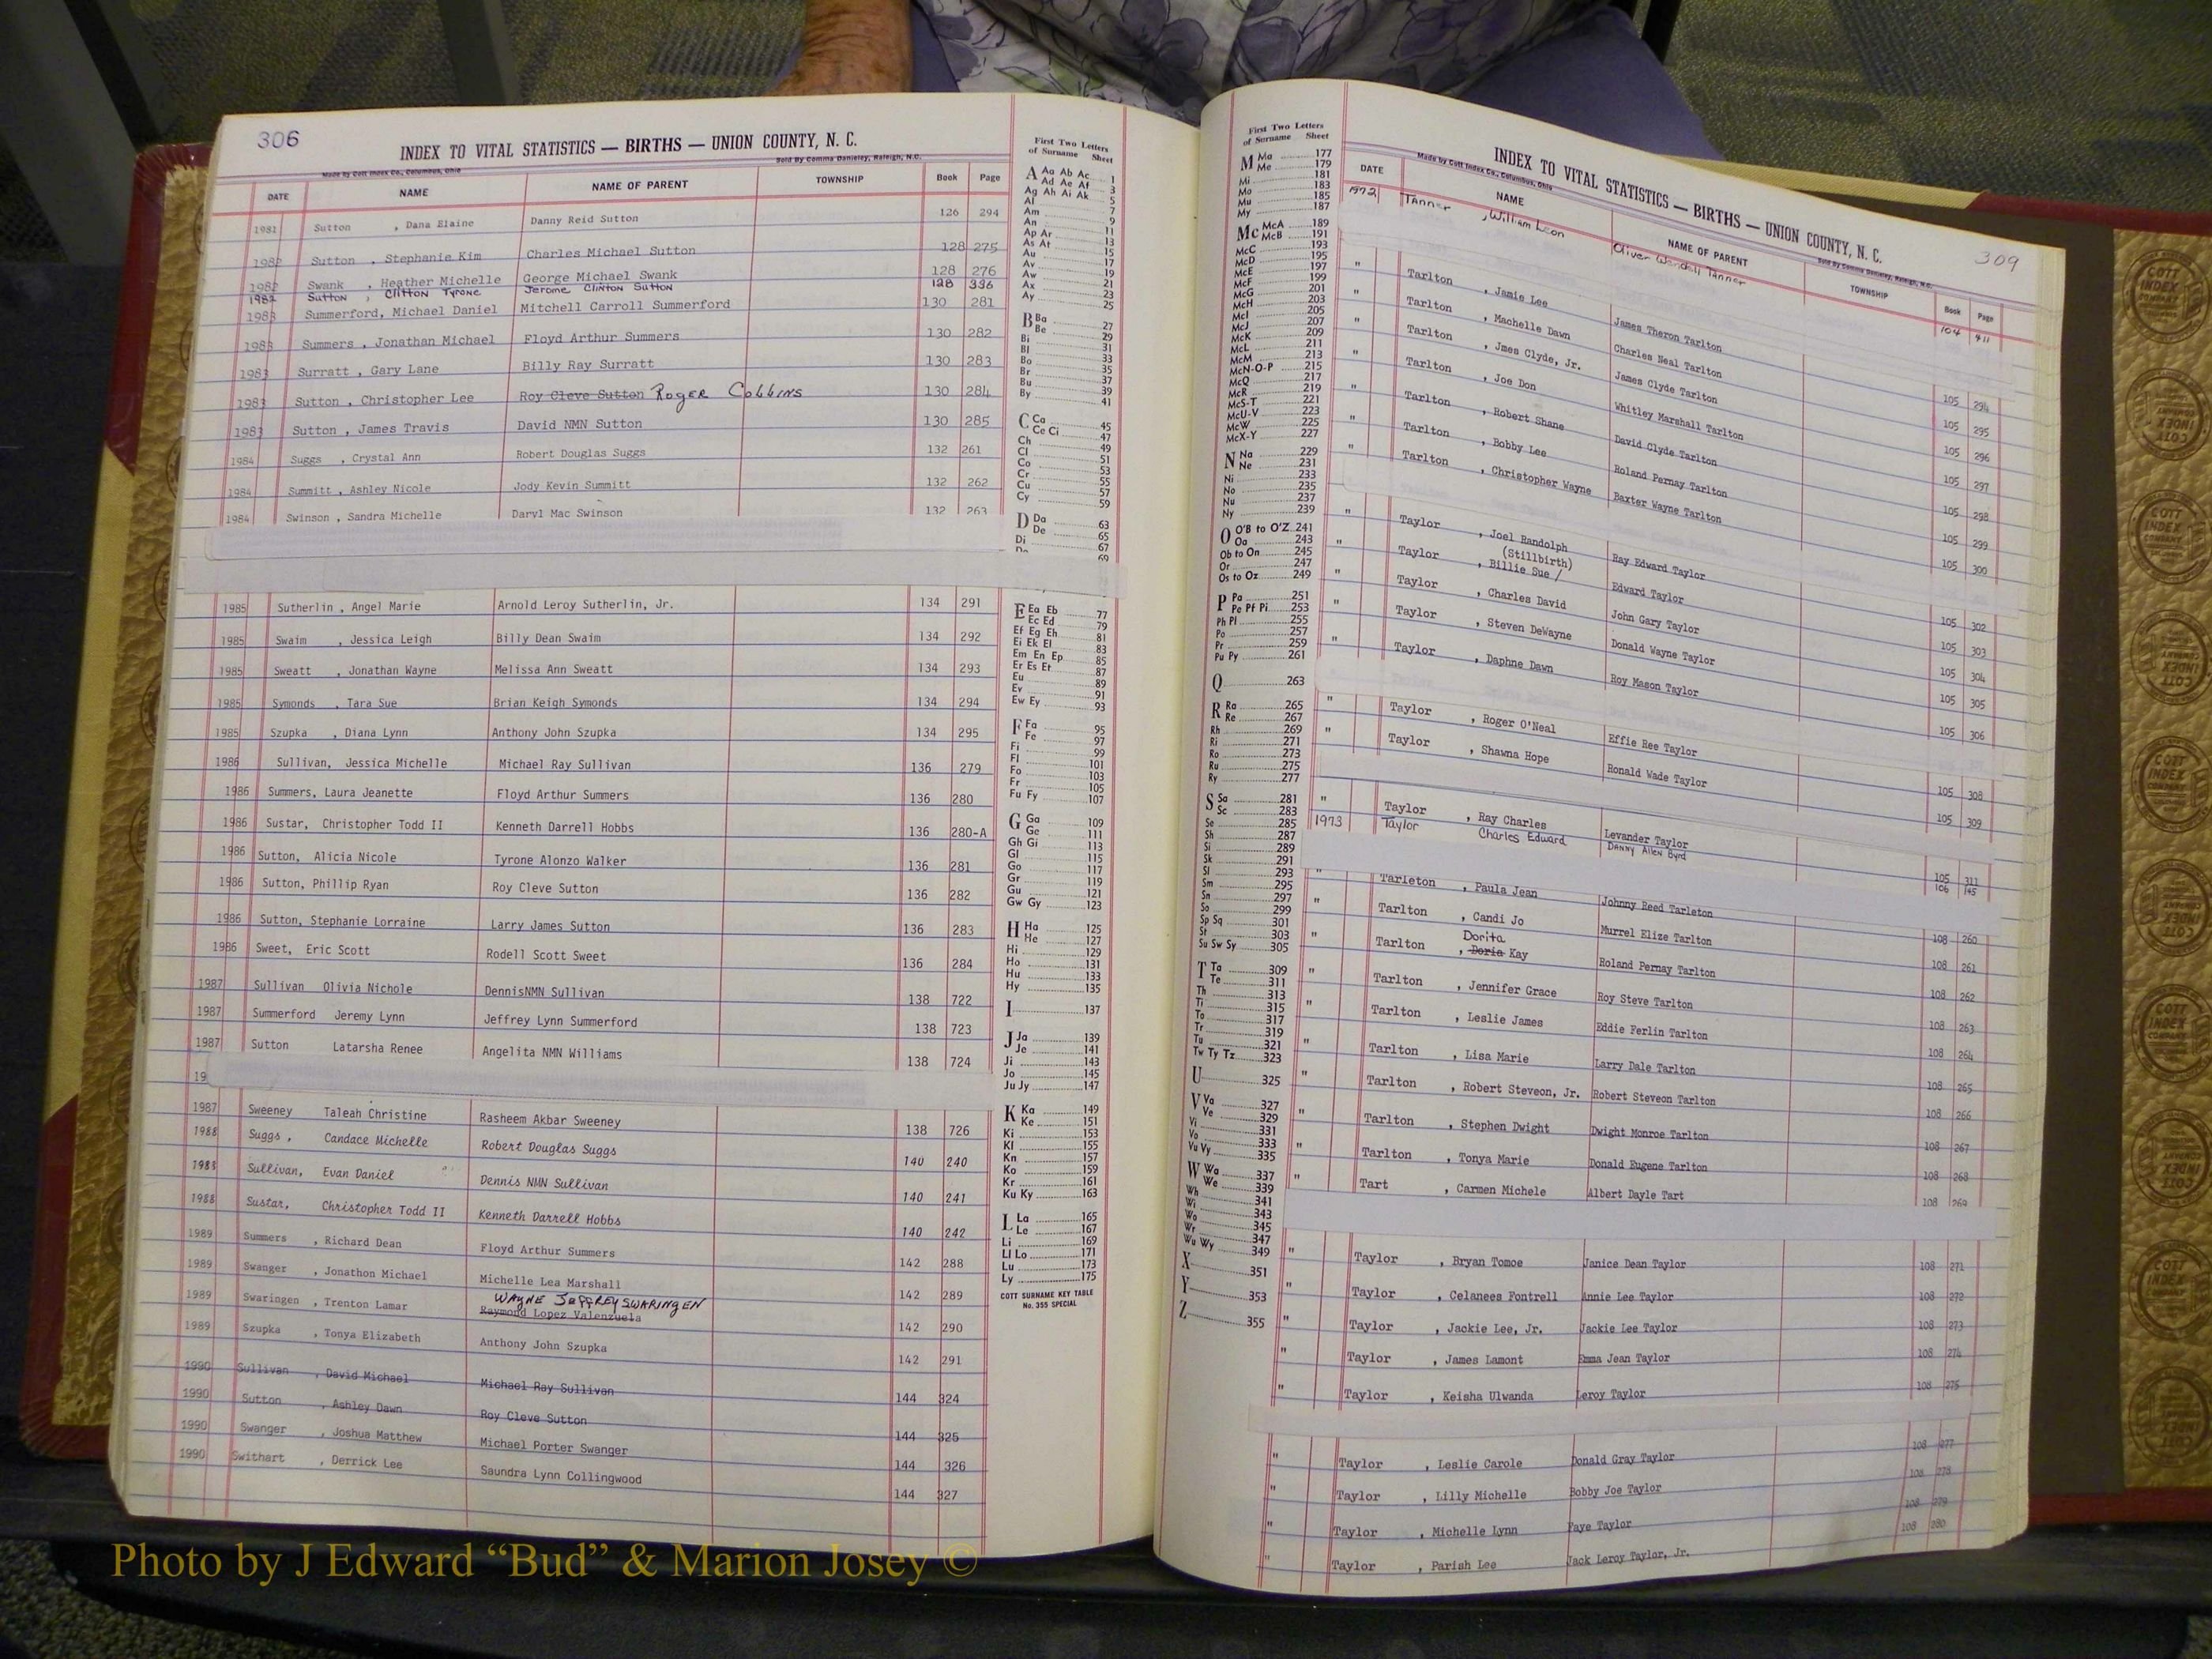 306
INDEX TO VITAL STATISTICS — BIRTHS — UNION COUNTY, N. C.
Made by Cott Index Co., Columbus, Ohio Sold By Comma Danieley, Raleigh, N.C.
DATE NAME NAME OF PARENT TOWNSHIP Book Page
1981 Sutton , Dana Elaine Danny Reid Sutton 126 294
1982 Sutton , Stephanie Kim Charles Michael Sutton 128 275
1982 Swank , Heather Michelle George Michael Swank 128 276
1982 Sutton , Clifton Tyrone Jerome Clinton Sutton 128 336
1983 Summerford, Michael Daniel Mitchell Carroll Summerford 130 281
1983 Summers , Jonathan Michael Floyd Arthur Summers 130 282
1983 Surratt , Gary Lane Billy Ray Surratt 130 283
1983 Sutton , Christopher Lee Roy Cleve Sutton Roger Collins 130 284
1983 Sutton , James Travis David NMN Sutton 130 285
1984 Suggs , Crystal Ann Robert Douglas Suggs 132 261
1984 Summitt , Ashley Nicole Jody Kevin Summitt 132 262
1984 Swinson , Sandra Michelle Daryl Mac Swinson 132 263
1985 Sutherlin , Angel Marie Arnold Leroy Sutherlin, Jr. 134 291
1985 Swaim , Jessica Leigh Billy Dean Swaim 134 292
1985 Sweatt , Jonathan Wayne Melissa Ann Sweatt 134 293
1985 Symonds , Tara Sue Brian Keigh Symonds 134 294
1985 Szupka , Diana Lynn Anthony John Szupka 134 295
1986 Sullivan, Jessica Michelle Michael Ray Sullivan 136 279
1986 Summers, Laura Jeanette Floyd Arthur Summers 136 280
1986 Sustar, Christopher Todd II Kenneth Darrell Hobbs 136 280-A
1986 Sutton, Alicia Nicole Tyrone Alonzo Walker 136 281
1986 Sutton, Phillip Ryan Roy Cleve Sutton 136 282
1986 Sutton, Stephanie Lorraine Larry James Sutton 136 283
1986 Sweet, Eric Scott Rodell Scott Sweet 136 284
1987 Sullivan Olivia Nichole DennisNMN Sullivan 138 722
1987 Summerford Jeremy Lynn Jeffrey Lynn Summerford 138 723
1987 Sutton Latarsha Renee Angelita NMN Williams 138 724
19
1987 Sweeney Taleah Christine Rasheem Akbar Sweeney 138 726
1988 Suggs , Candace Michelle Robert Douglas Suggs 140 240
1988 Sullivan, Evan Daniel Dennis NMN Sullivan 140 241
1988 Sustar, Christopher Todd II Kenneth Darrell Hobbs 140 242
1989 Summers , Richard Dean Floyd Arthur Summers 142 288
1989 Swanger , Jonathon Michael Michelle Lea Marshall 142 289
Wayne Jeffrey Swaringen
1989 Swaringen , Trenton Lamar Raymond Lopez Valenzuela 142 290
1989 Szupka , Tonya Elizabeth Anthony John Szupka 142 291
1990 Sullivan , David Michael Michael Ray Sullivan 144 324
1990 Sutton , Ashley Dawn Roy Cleve Sutton 144 325
1990 Swanger , Joshua Matthew Michael Porter Swanger 144 326
1990 Swithart , Derrick Lee Saundra Lynn Collingwood 144 327
First Two Letters
of Surname Sheet
A Aa Ab Ac 1
Ad Ae Af 3
Ag Ah Ai Ak 5
Al 7
Am 9
An 11
Ap Ar 13
As At 15
Au 17
Av 19
Aw 21
Ax 23
Ay 25
B Ba 27
Be 29
Bi 31
Bl 33
Bo 35
Br 37
Bu 39
By 41
C Ca 45
Ce Ci 47
Ch 49
Cl 51
Co 53
Cr 55
Cu 57
Cy 59
D Da 63
De 65
Di 67
Do 69
E Ea Eb 77
Ec Ed 79
Ef Eg Eh 81
Ei Ek El 83
Em En Ep 85
Er Es Et 87
Eu 89
Ev 91
Ew Ey 93
F Fa 95
Fe 97
Fi 99
Fl 101
Fo 103
Fr 105
Fu Fy 107
G Ga 109
Ge 111
Gh Gi 113
Gl 115
Go 117
Gr 119
Gu 121
Gw Gy 123
H Ha 125
He 127
Hi 129
Ho 131
Hu 133
Hy 135
I 137
J Ja 139
Je 141
Ji 143
Jo 145
Ju Jy 147
K Ka 149
Ke 151
Ki 153
Kl 155
Kn 157
Ko 159
Kr 161
Ku Ky 163
L La 165
Le 167
Li 169
Ll Lo 171
Lu 173
Ly 175
COTT SURNAME KEY TABLE
No. 355 SPECIAL
First Two Letters
of Surname Sheet
M Ma 177
Me 179
Mi 181
Mo 183
Mu 185
My 187
Mc McA 189
McB 191
McC 193
McD 195
McE 197
McF 199
McG 201
McH 203
McI 205
McJ 207
McK 209
McL 211
McM 213
McN-O-P 215
McQ 217
McR 219
McS-T 221
McU-V 223
McW 225
McX-Y 227
N Na 229
Ne 231
Ni 233
No 235
Nu 237
Ny 239
O O'B to O'Z 241
Oa 243
Ob to On 245
Or 247
Os to Oz 249
P Pa 251
Pe Pf Pi 253
Ph Pl 255
Po 257
Pr 259
Pu Py 261
Q 263
R Ra 265
Re 267
Rh 269
Ri 271
Ro 273
Ru 275
Ry 277
S Sa 281
Sc 283
Se 285
Sh 287
Si 289
Sk 291
Sl 293
Sm 295
Sn 297
So 299
Sp Sq 301
St 303
Su Sw Sy 305
T Ta 309
Te 311
Th 313
Ti 315
To 317
Tr 319
Tu 321
Tw Ty Tz 323
U 325
V Va 327
Ve 329
Vi 331
Vo 333
Vu Vy 335
W Wa 337
We 339
Wh 341
Wi 343
Wo 345
Wr 347
Wu Wy 349
X 351
Y 353
Z 355
309
INDEX TO VITAL STATISTICS — BIRTHS — UNION COUNTY, N. C.
Made by Cott Index Co., Columbus, Ohio Sold By Comma Danieley, Raleigh, N.C.
DATE NAME NAME OF PARENT TOWNSHIP Book Page
1972 Tanner , William Leon Oliver Wendell Tanner 104 411
" Tarlton , Jamie Lee James Theron Tarlton 105 294
" Tarlton , Machelle Dawn Charles Neal Tarlton 105 295
" Tarlton , Jmes Clyde, Jr. James Clyde Tarlton 105 296
" Tarlton , Joe Don Whitley Marshall Tarlton 105 297
" Tarlton , Robert Shane David Clyde Tarlton 105 298
" Tarlton , Bobby Lee Roland Pernay Tarlton 105 299
" Tarlton , Christopher Wayne Baxter Wayne Tarlton 105 300
" Taylor , Joel Randolph Ray Edward Taylor 105 302
(Stillbirth)
" Taylor , Billie Sue / Edward Taylor 105 303
" Taylor , Charles David John Gary Taylor 105 304
" Taylor , Steven DeWayne Donald Wayne Taylor 105 305
" Taylor , Daphne Dawn Roy Mason Taylor 105 306
" Taylor , Roger O'Neal Effie Ree Taylor 105 308
" Taylor , Shawna Hope Ronald Wade Taylor 105 309
" Taylor , Ray Charles Levander Taylor 105 311
1973 Taylor Charles Edward Danny Allen Byrd 106 145
" Tarleton , Paula Jean Johnny Reed Tarleton 108 260
" Tarlton , Candi Jo Murrel Elize Tarlton 108 261
Dorita
" Tarlton , Doria Kay Roland Pernay Tarlton 108 262
" Tarlton , Jennifer Grace Roy Steve Tarlton 108 263
" Tarlton , Leslie James Eddie Ferlin Tarlton 108 264
" Tarlton , Lisa Marie Larry Dale Tarlton 108 265
" Tarlton , Robert Steveon, Jr. Robert Steveon Tarlton 108 266
" Tarlton , Stephen Dwight Dwight Monroe Tarlton 108 267
" Tarlton , Tonya Marie Donald Eugene Tarlton 108 268
" Tart , Carmen Michele Albert Dayle Tart 108 269
" Taylor , Bryan Tomoe Janice Dean Taylor 108 271
" Taylor , Celanees Fontrell Annie Lee Taylor 108 272
" Taylor , Jackie Lee, Jr. Jackie Lee Taylor 108 273
" Taylor , James Lamont Emma Jean Taylor 108 274
" Taylor , Keisha Ulwanda Leroy Taylor 108 275
" Taylor , Leslie Carole Donald Gray Taylor 108 277
" Taylor , Lilly Michelle Bobby Joe Taylor 108 278
" Taylor , Michelle Lynn Faye Taylor 108 279
" Taylor , Parish Lee Jack Leroy Taylor, Jr. 108 280
COTT INDEX COMPANY
Photo by J Edward “Bud” & Marion Josey ©